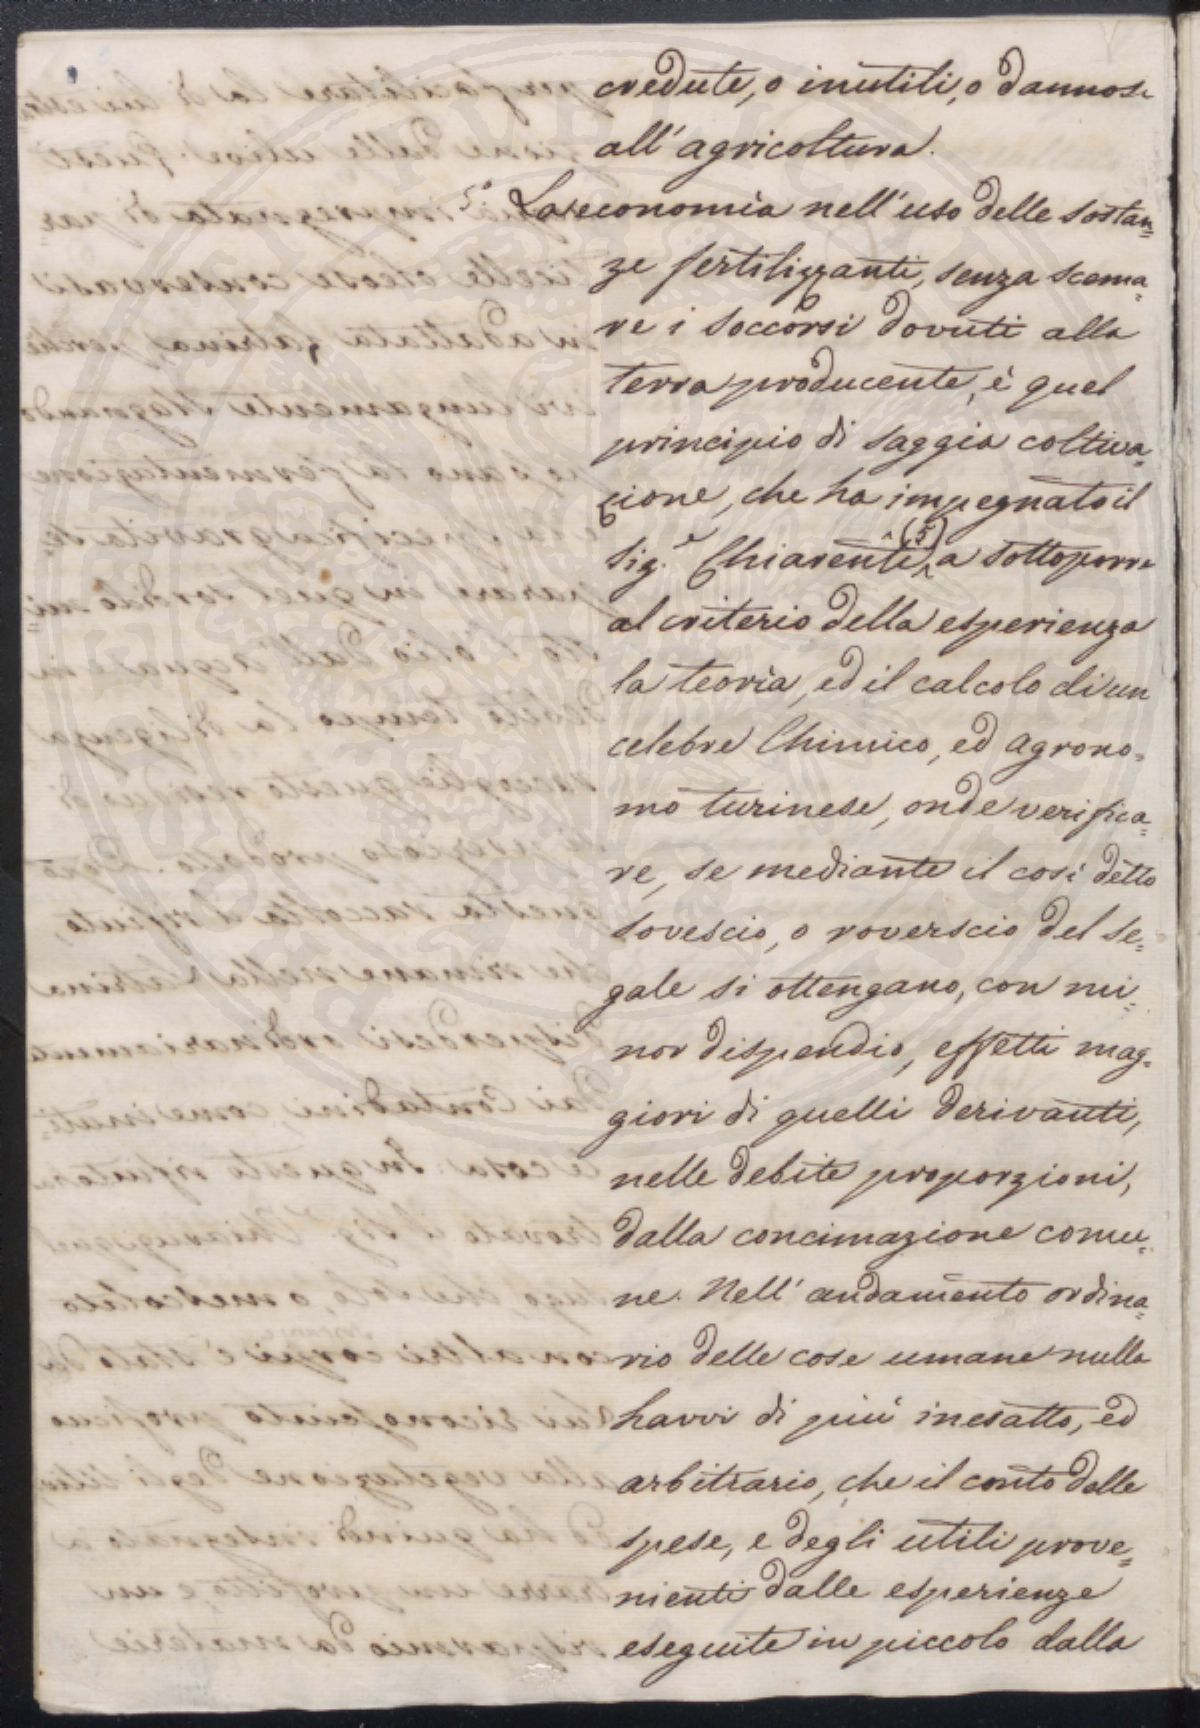 credute, o inutili, o dannose
all' agricoltura.
5° La economìa nell' uso delle sostan=
ze fertilizzanti, senza scema=
re i soccorsi dovuti alla
terra producente, è quel
principio di saggia coltiva=
zione, che ha impegnato il
Sig.e Chiarenti (5) a sottoporre
al criterio della esperienza
la teorìa, ed il calcolo di un
celebre Chimico, ed agrono=
mo turinese, onde verifica=
re, se mediante il così detto
sovescio, o roverscio del se=
gale si ottengano, con mi=
nor dispendio, effetti mag=
giori di quelli derivanti,
nelle debite proporzioni,
dalla concimazione comu=
ne. Nell' andamento ordina=
rio delle cose umane nulla
havvi di più inesatto, ed
arbitrario, che il conto delle
spese, e degli utili prove=
nienti dalle esperienze
eseguite in piccolo dalla